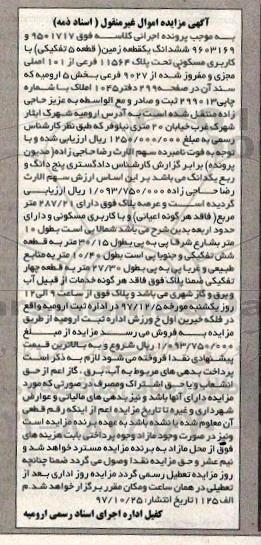 آگهی مزایده اموال غیرمنقول ( اسناد ذمه)
به موجب پرونده اجرائی کلاسه فوق ۹۵۰۱۷۱۷ و
۹۶۰۳۱۶۹ ششدانگ یکقطعه زمین( قطعه ۵ تفکیکی) با
کاربری مسکونی تحت پلاک ۱۱۵۶۴ فرعی از ۱۰۱ اصلی
مجزی و مفروز شده از ۹۰۲۷ فرعی بخش ۵ ارومیه که
سند آن در صفحه ۲۹۹ دفتر ۱۰۴۵ املاک با شماره
چاپی ۲۹۹۰۱۳ ثبت و صادر و مع الواسطه به عزیز حاجی
زاده منتقل شده است به آدرس ارومیه شهرک ایثار
شهرک غرب خیابان ۲۰ متری نیلوفر که طبق نظر کارشناس
رسمی به مبلغ ۱/۲۵۰/۰۰۰/۰۰۰ ریال ارزیابی شده و با
توجه به فوت نامبرده سهم الارث رضا حاجی زاده (مدیون
پرونده) برابر گزارش کارشناس دادگستری پنج دانگ و
ربع یکدانگ می باشد بر این اساس ارزش سهم الارث
رضا حاجی زاده ۱/۰۹۳/۷۵۰/۰۰۰ ریال ارزیابی
گردیده است و عرصه پلاک فوق دارای ۲۸۷/۲۱ متر
مربع( فاقد هر گونه اعیانی) و با کاربری مسکونی و دارای
حدود اربعه بدین شرح می باشد شمالا پی است بطول ۱۰
متر بشارع شرقا پی به پی بطول ۳۰/۱۵ متر به قطعه
شش تفکیکی و جنوبا پی است بطول ۱۰/۴۰ متر به منابع
طبیعی و غربا پی به پی بطول ۲۷/۳۰ متر به قطعه چهار
تفکیکی ضمنا پلاک فوق فاقد هر گونه خدمات از قبیل آب
و برق و گاز شهری می باشد و پلاک فوق از ساعت ۹ الی ۱۲
روز یکشنبه مورخه ۹۷/۱۲/۵ در اداره ثبت ارومیه واقع
در فلکه خیرین اول خ ورزش اداره ثبت ارومیه از طریق
مزایده به فروش می رسد مزایده از مبلغ
۱/۰۹۳/۷۵۰/۰۰۰ ریال شروع و به بالاترین قیمت
پیشنهادی نقدا فروخته می شود لازم به ذکر است
پرداخت بدهی های مربوط به آب، برق ، گاز اعم از حق
انشعاب و یا حق اشتراک ومصرف در صورتی که مورد
مزایده دارای آنها باشد و نیز بدهی های مالیاتی و عوارض
شهرداری و غیره تا تاریخ مزایده اعم از اینکه رقم قطعی
آن معلوم شده یا نشده باشد به عهده برنده مزایده است
ونیز در صورت وجود مازاد وجوه پرداختی بابت هزینه های
فوق از محل مازاد به برنده مزایده مسترد خواهد شد و
نیم عشر و حق مزایده نقدا وصول می گردد ضمنا چنانچه
روز مزایده تعطیل رسمی گردد مزایده روز اداری بعد از
تعطیلی در همان ساعت ومکان مقرر برگزار خواهد شد. م
الف ۱۱۲۵ تاریخ انتشار: ۹۷/۱۰/۲۵
کفیل اداره اجرای اسناد رسمی ارومیه